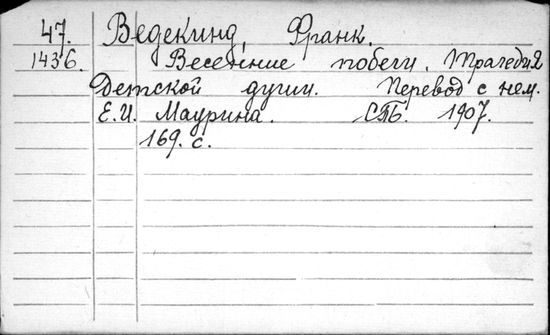 47. Ведекинд, Франк.
1436. Весенние побеги. Трагедия
Детской души. Перевод с нем.
Е.И. Маурина. СПБ. 1907.
169. с.